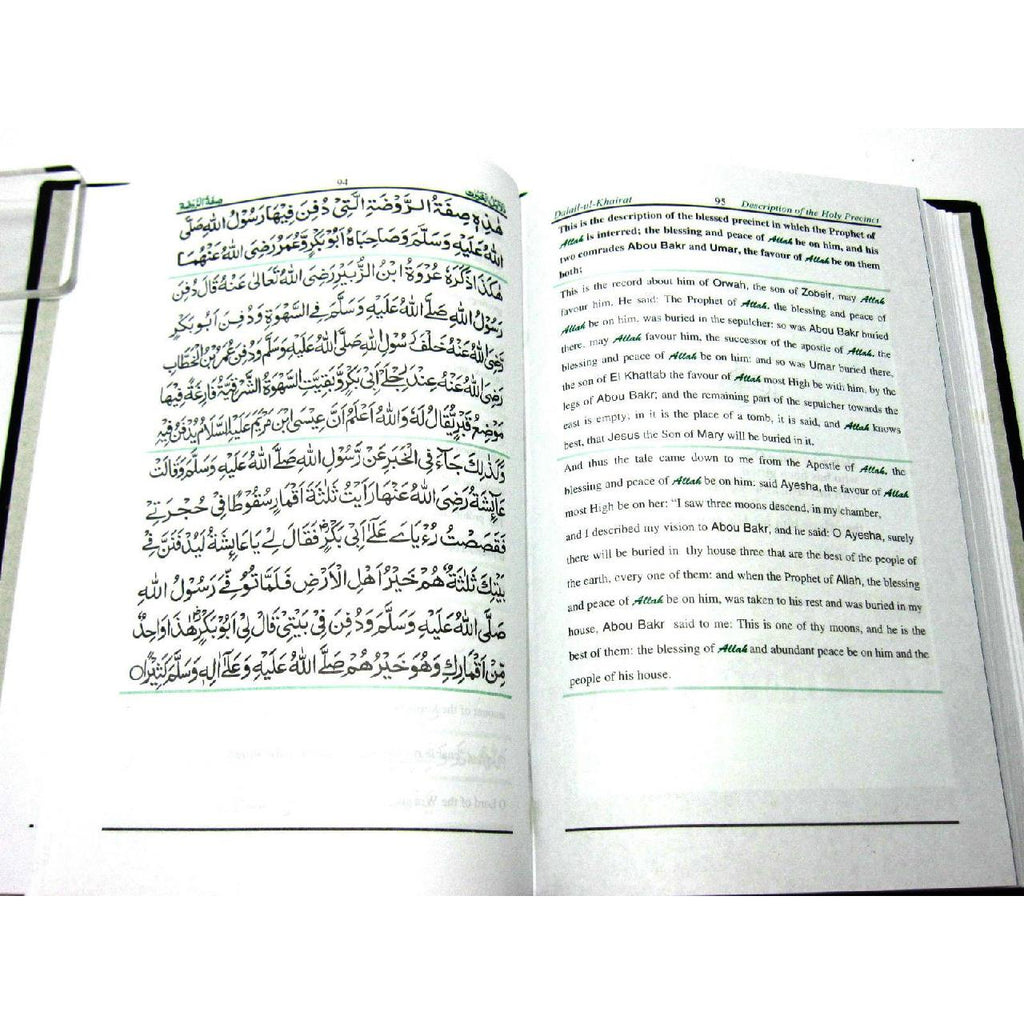 94
صفة الروضة
هٰذِهٖ صِفَةُ الرَّوْضَةِ الَّتِیْ دُفِنَ فِيْهَا رَسُوْلُ اللهِ صَلَّى
اللهُ عَلَيْهِ وَسَلَّمَ وَصَاحِبَاهُ اَبُوْ بَكْرٍ وَّعُمَرُ رَضِیَ اللهُ عَنْهُمَا
هٰكَذَا ذَكَرَهٗ عُرْوَةُ ابْنُ الزُّبَيْرِ رَضِیَ اللهُ تَعَالٰى عَنْهُ قَالَ دُفِنَ
رَسُوْلُ اللهِ صَلَّے اللهُ عَلَيْهِ وَسَلَّمَ فِے السَّهْوَةِ وَدُفِنَ اَبُوْ بَكْرٍ
رَضِیَ اللهُ عَنْهُ خَلْفَ رَسُوْلِ اللهِ صَلَّى اللهُ عَلَيْهِ وَسَلَّمَ وَدُفِنَ عُمَرُ بْنُ الْخَطَّابِ
رَضِیَ اللهُ عَنْهُ عِنْدَ رِجْلَےْ اَبِیْ بَكْرٍ وَّبَقِيَتِ السَّهْوَةُ الشَّرْقِيَّةُ فَارِغَةٌ فِيْهَا
مَوْضِعُ قَبْرٍ يُّقَالُ لَهٗ وَاللهُ اَعْلَمُ اَنَّ عِيْسَى ابْنَ مَرْيَمَ عَلَيْهِ السَّلَامُ يُدْفَنُ فِيْهِ
وَكَذٰلِكَ جَآءَ فِی الْخَبَرِ عَنْ رَّسُوْلِ اللهِ صَلَّے اللهُ عَلَيْهِ وَسَلَّمَ وَقَالَتْ
عَآئِشَةُ رَضِیَ اللهُ عَنْهَا رَاَيْتُ ثَلٰثَةَ اَقْمَارٍ سُقُوْطًا فِیْ حُجْرَتِےْ
فَقَصَصْتُ رُءْيَاےَ عَلٰٓے اَبِیْ بَكْرٍ فَقَالَ لِےْ يَا عَآئِشَةُ لَيُدْفَنَنَّ فِیْ
بَيْتِكِ ثَلٰثَةٌ هُمْ خَيْرُ اَهْلِ الْاَرْضِ فَلَمَّا تُوُفِّےَ رَسُوْلُ اللهِ
صَلَّى اللهُ عَلَيْهِ وَسَلَّمَ وَدُفِنَ فِیْ بَيْتِیْ قَالَ لِیْ اَبُوْ بَكْرٍ هٰذَا وَاحِدٌ
مِّنْ اَقْمَارِكِ وَهُوَ خَيْرُهُمْ صَلَّے اللهُ عَلَيْهِ وَعَلٰٓے اٰلِهٖ وَسَلَّمَ كَثِيْرًا
Dalail-ul-Khairat 95 Description of the Holy Precinct
This is the description of the blessed precinct in which the Prophet of
Allah is interred; the blessing and peace of Allah be on him, and his
two comrades Abou Bakr and Umar, the favour of Allah be on them
both;
This is the record about him of Orwah, the son of Zobeir, may Allah
favour him. He said: The Prophet of Allah, the blessing and peace of
Allah be on him, was buried in the sepulcher; so was Abou Bakr buried
there, may Allah favour him, the successor of the apostle of Allah, the
blessing and peace of Allah be on him: and so was Umar buried there,
the son of El Khattab the favour of Allah most High be with him, by the
legs of Abou Bakr; and the remaining part of the sepulcher towards the
east is empty; in it is the place of a tomb, it is said, and Allah knows
best, that Jesus the Son of Mary will be buried in it.
And thus the tale came down to me from the Apostle of Allah, the
blessing and peace of Allah be on him: said Ayesha, the favour of Allah
most High be on her: "I saw three moons descend, in my chamber,
and I described my vision to Abou Bakr, and he said: O Ayesha, surely
there will be buried in thy house three that are the best of the people of
the earth, every one of them: and when the Prophet of Allah, the blessing
and peace of Allah be on him, was taken to his rest and was buried in my
house, Abou Bakr said to me: This is one of thy moons, and he is the
best of them: the blessing of Allah and abundant peace be on him and the
people of his house.